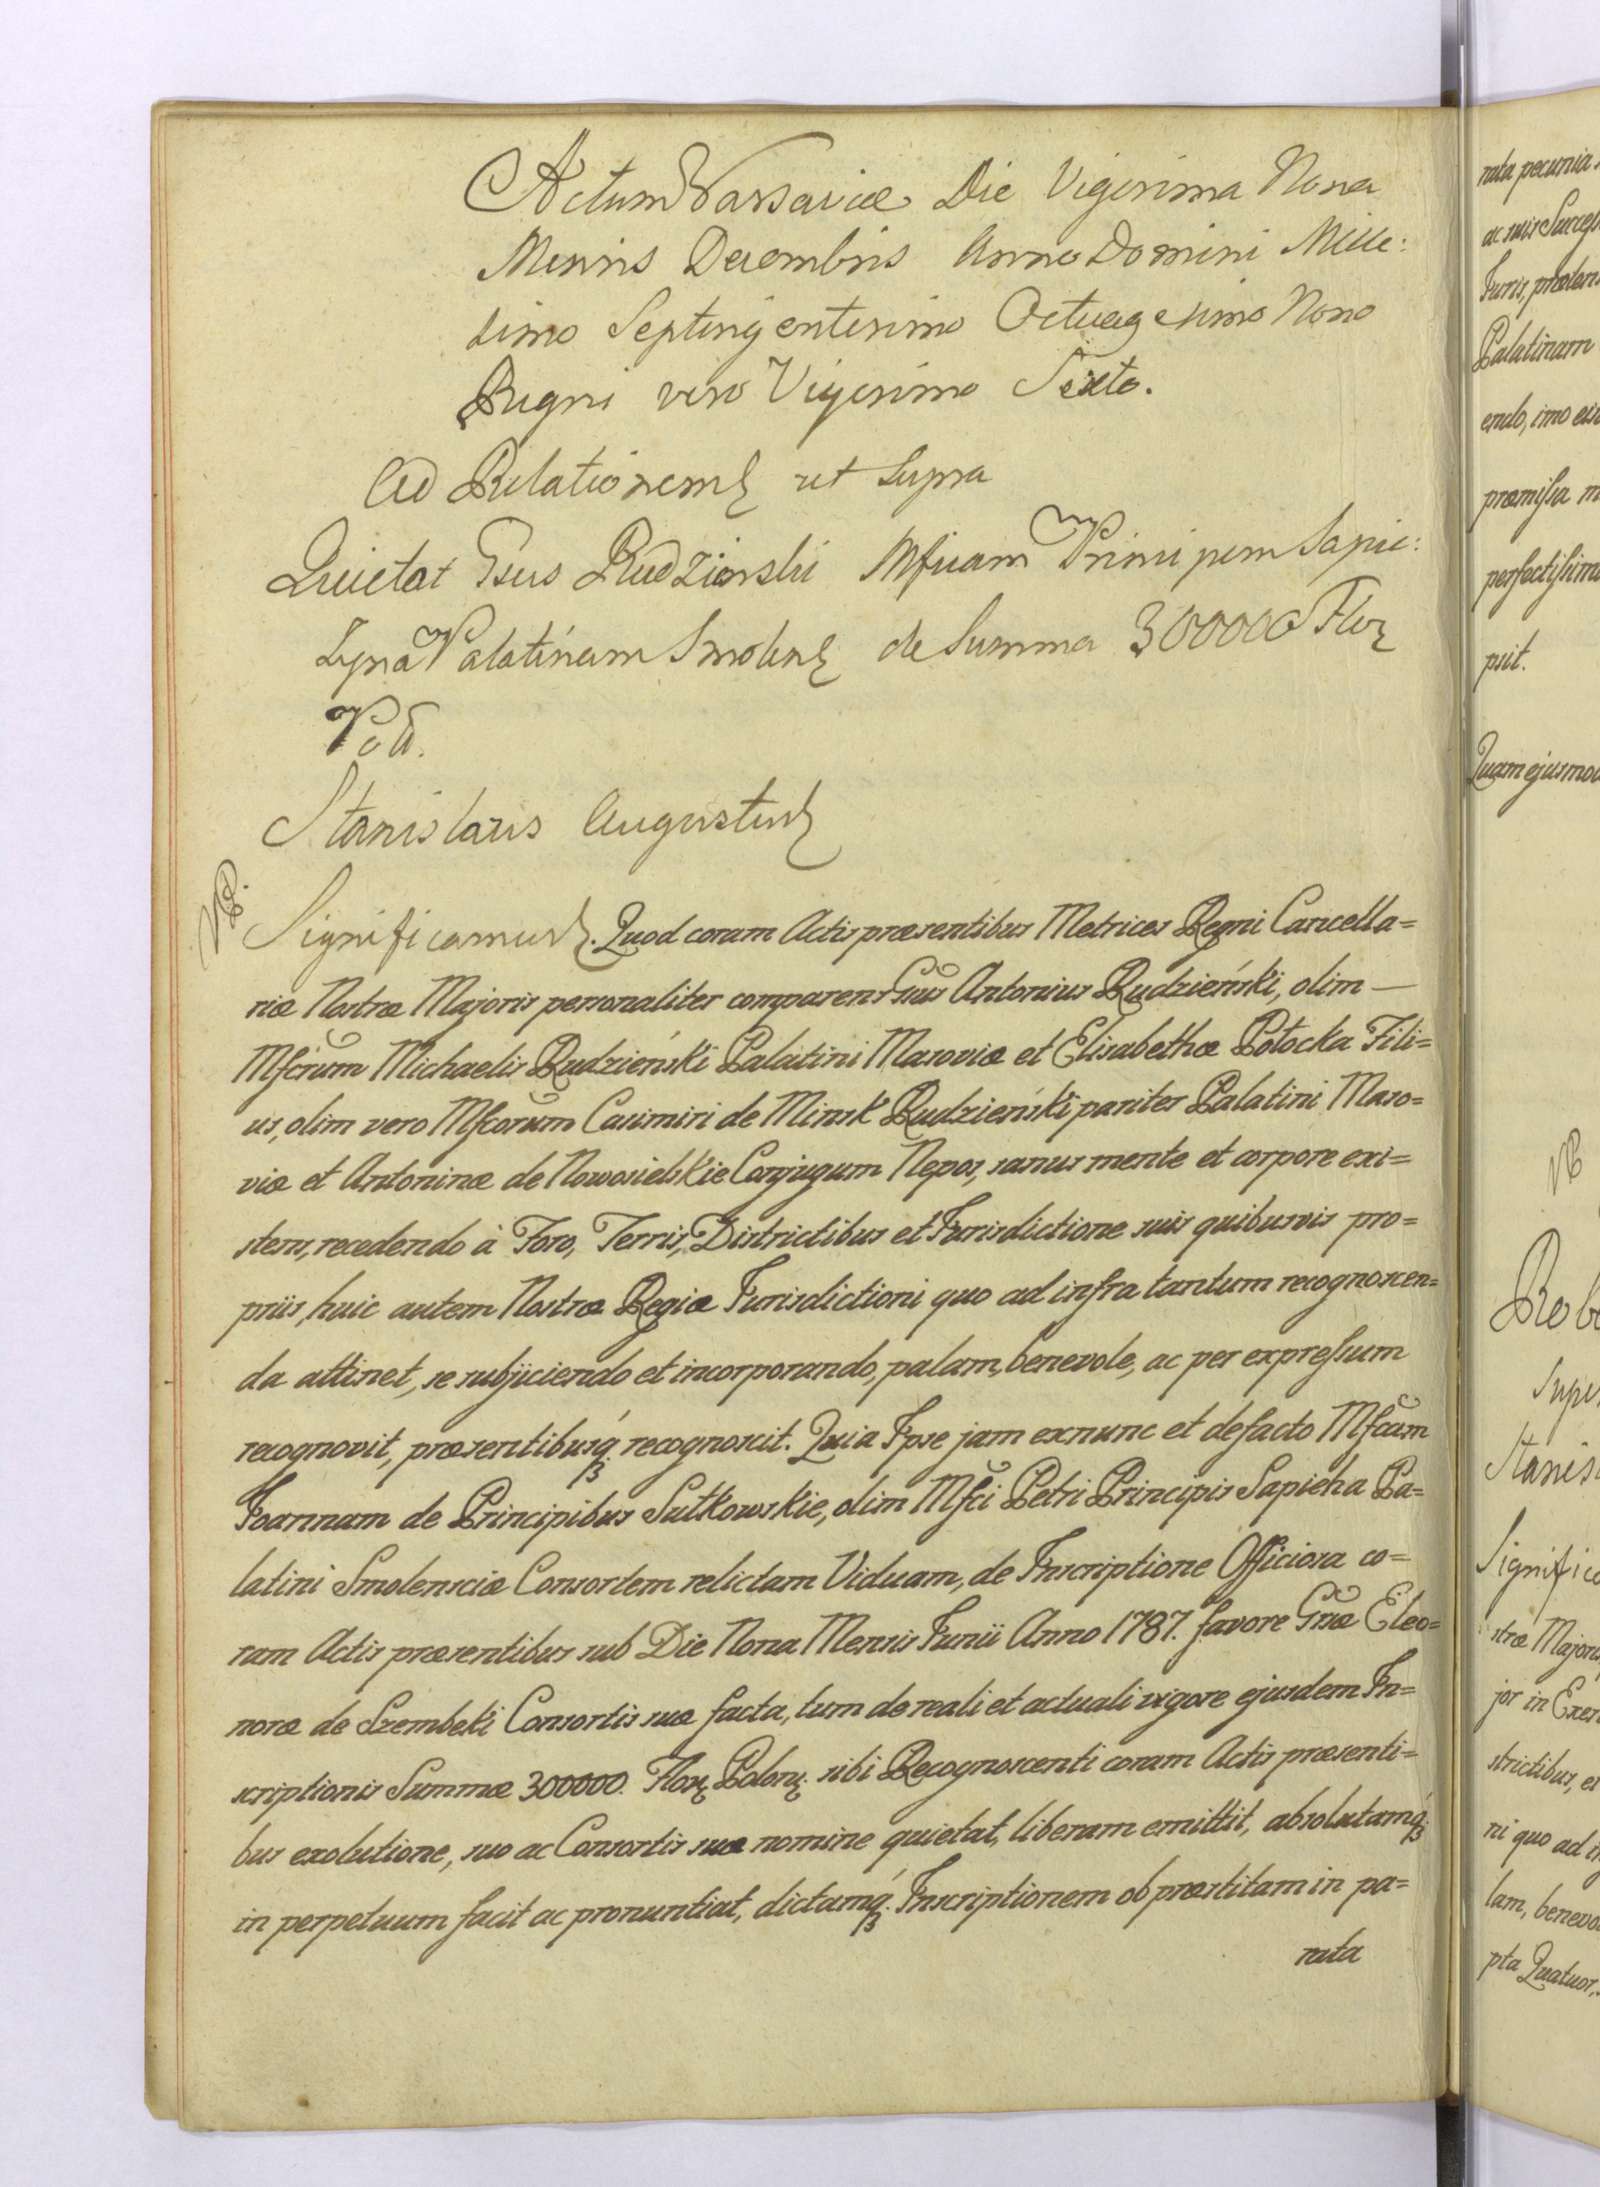 Actum Varsaviæ Die Vigesima Nona
Mensis Decembris Anno Domini Mille:
simo Septingentesimo Octuagesimo Nono
Regni vero Vigesimo Sexto.
Ad Relationem ut Supra
Quietat Gsus Rudzienski Mficam Principem Sapie:
żyna Palatinam Smolens de Summa 300000 Flor
Pol.
Stanislaus Augustus
NB.
Significamus. Quod coram Actis præsentibus Metrices Regni Cancella=
riæ Nostræ Majoris personaliter comparens Gsus Antonius Rudzieński, olim —
Mfcrum Michaelis Rudzieński Palatini Masoviæ et Elisabethæ Potocka Fili=
us, olim vero Mfcorum Casimiri de Minsk Rudzieński pariter Palatini Maso=
viæ et Antoninæ de Nowosielskie Conjugum Nepos, sanus mente et corpore exi=
stens, recedendo à Foro, Terris, Districtibus et Jurisdictione suis quibusvis pro=
priis, huic autem Nostræ Regiæ Jurisdictioni quo ad infra tantum recognoscen=
da attinet, se subjiciendo et incorporando, palam, benevole, ac per expressum
recognovit, præsentibusq́ recognoscit. Quia Ipse jam exnunc et defacto Mfcam
Joannam de Principibus Sułkowskie, olim Mfci Petri Principis Sapieha Pa=
latini Smolensciæ Consortem relictam Viduam, de Inscriptione Officiosa co=
ram Actis præsentibus sub Die Nona Mensis Junii Anno 1787. favore Gsæ Eleo=
noræ de Szembeki Consortis suæ facta, tum de reali et actuali vigore ejusdem In=
scriptionis Summæ 300000. Flor. Polon. sibi Recognoscenti coram Actis præsenti=
bus exolutione, suo ac Consortis suæ nomine quietat, liberam emittit, absolutamq́
in perpetuum facit ac pronuntiat, dictamq́ Inscriptionem ob præstitam in pa=
rata
rata pecunia
ac suis Success
Juris, præten
Palatinam
endo, imo
præmissa
perfectissim
psit.
Quam ejusmod
NB
Stanis
Signific
stræ Majoris
jor in
strictibus, et
ni quo ad
lam, benevo
pta Quatuor,